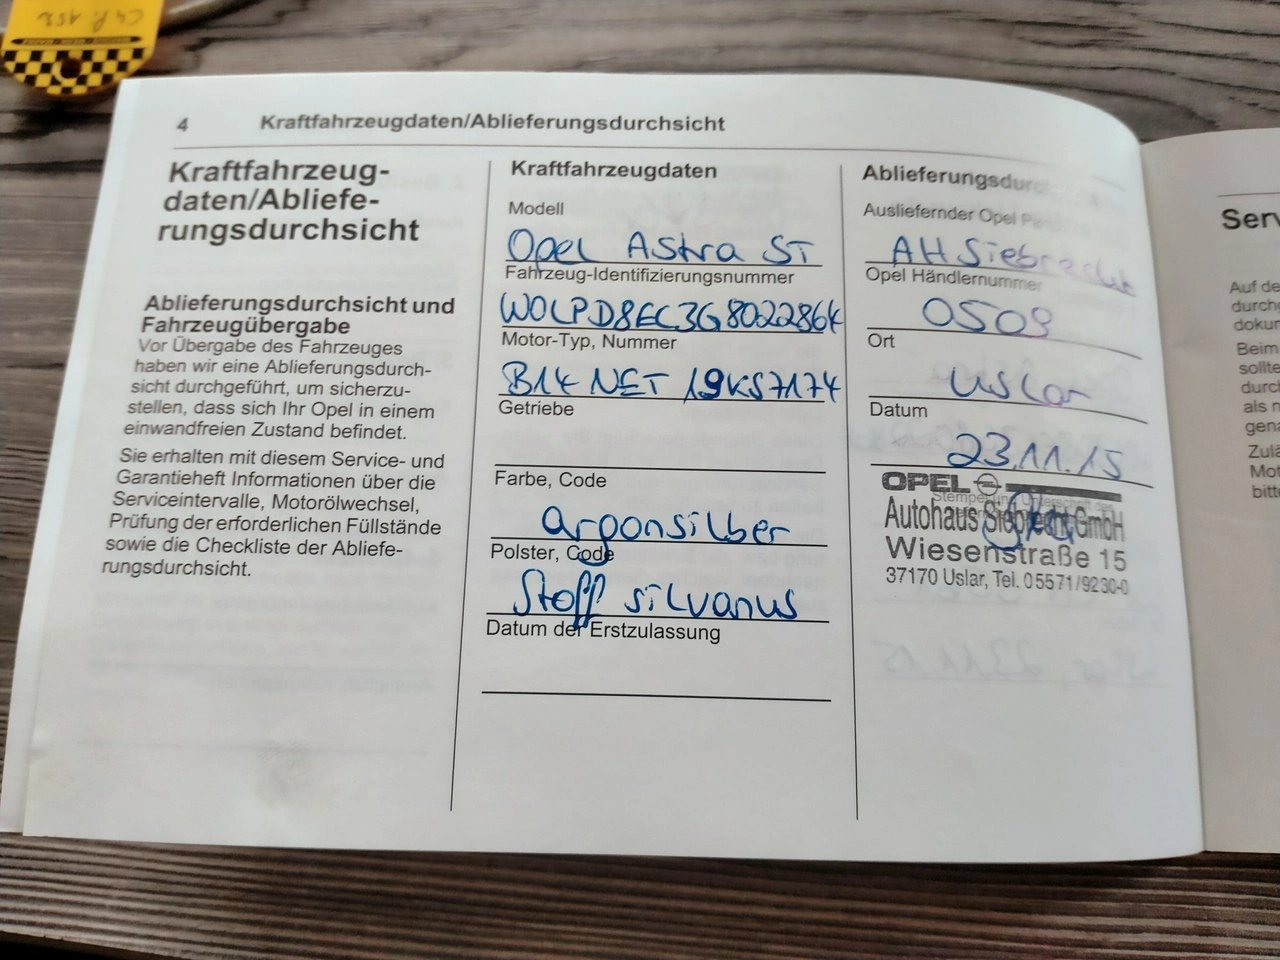 4 Kraftfahrzeugdaten/Ablieferungsdurchsicht
Kraftfahrzeug-
daten/Abliefe-
rungsdurchsicht
Ablieferungsdurchsicht und
Fahrzeugübergabe
Vor Übergabe des Fahrzeuges
haben wir eine Ablieferungsdurch-
sicht durchgeführt, um sicherzu-
stellen, dass sich Ihr Opel in einem
einwandfreien Zustand befindet.
Sie erhalten mit diesem Service- und
Garantieheft Informationen über die
Serviceintervalle, Motorölwechsel,
Prüfung der erforderlichen Füllstände
sowie die Checkliste der Abliefe-
rungsdurchsicht.
Kraftfahrzeugdaten
Modell
Opel Astra ST
Fahrzeug-Identifizierungsnummer
W0LPD8EC3G8022864
Motor-Typ, Nummer
B14NET 19KS7174
Getriebe
Farbe, Code
argonsilber
Polster, Code
Stoff silvanus
Datum der Erstzulassung
Ablieferungsdurc
Ausliefernder Opel
AH Siebrecht
Opel Händlernummer
0509
Ort
Uslar
Datum
23.11.15
OPEL
Autohaus Siebrecht GmbH
Wiesenstraße 15
37170 Uslar, Tel. 05571/9230-0
Ser
Auf de
durch
dokur
Beim
sollte
durc
als n
gena
Zulä
Mot
bitt